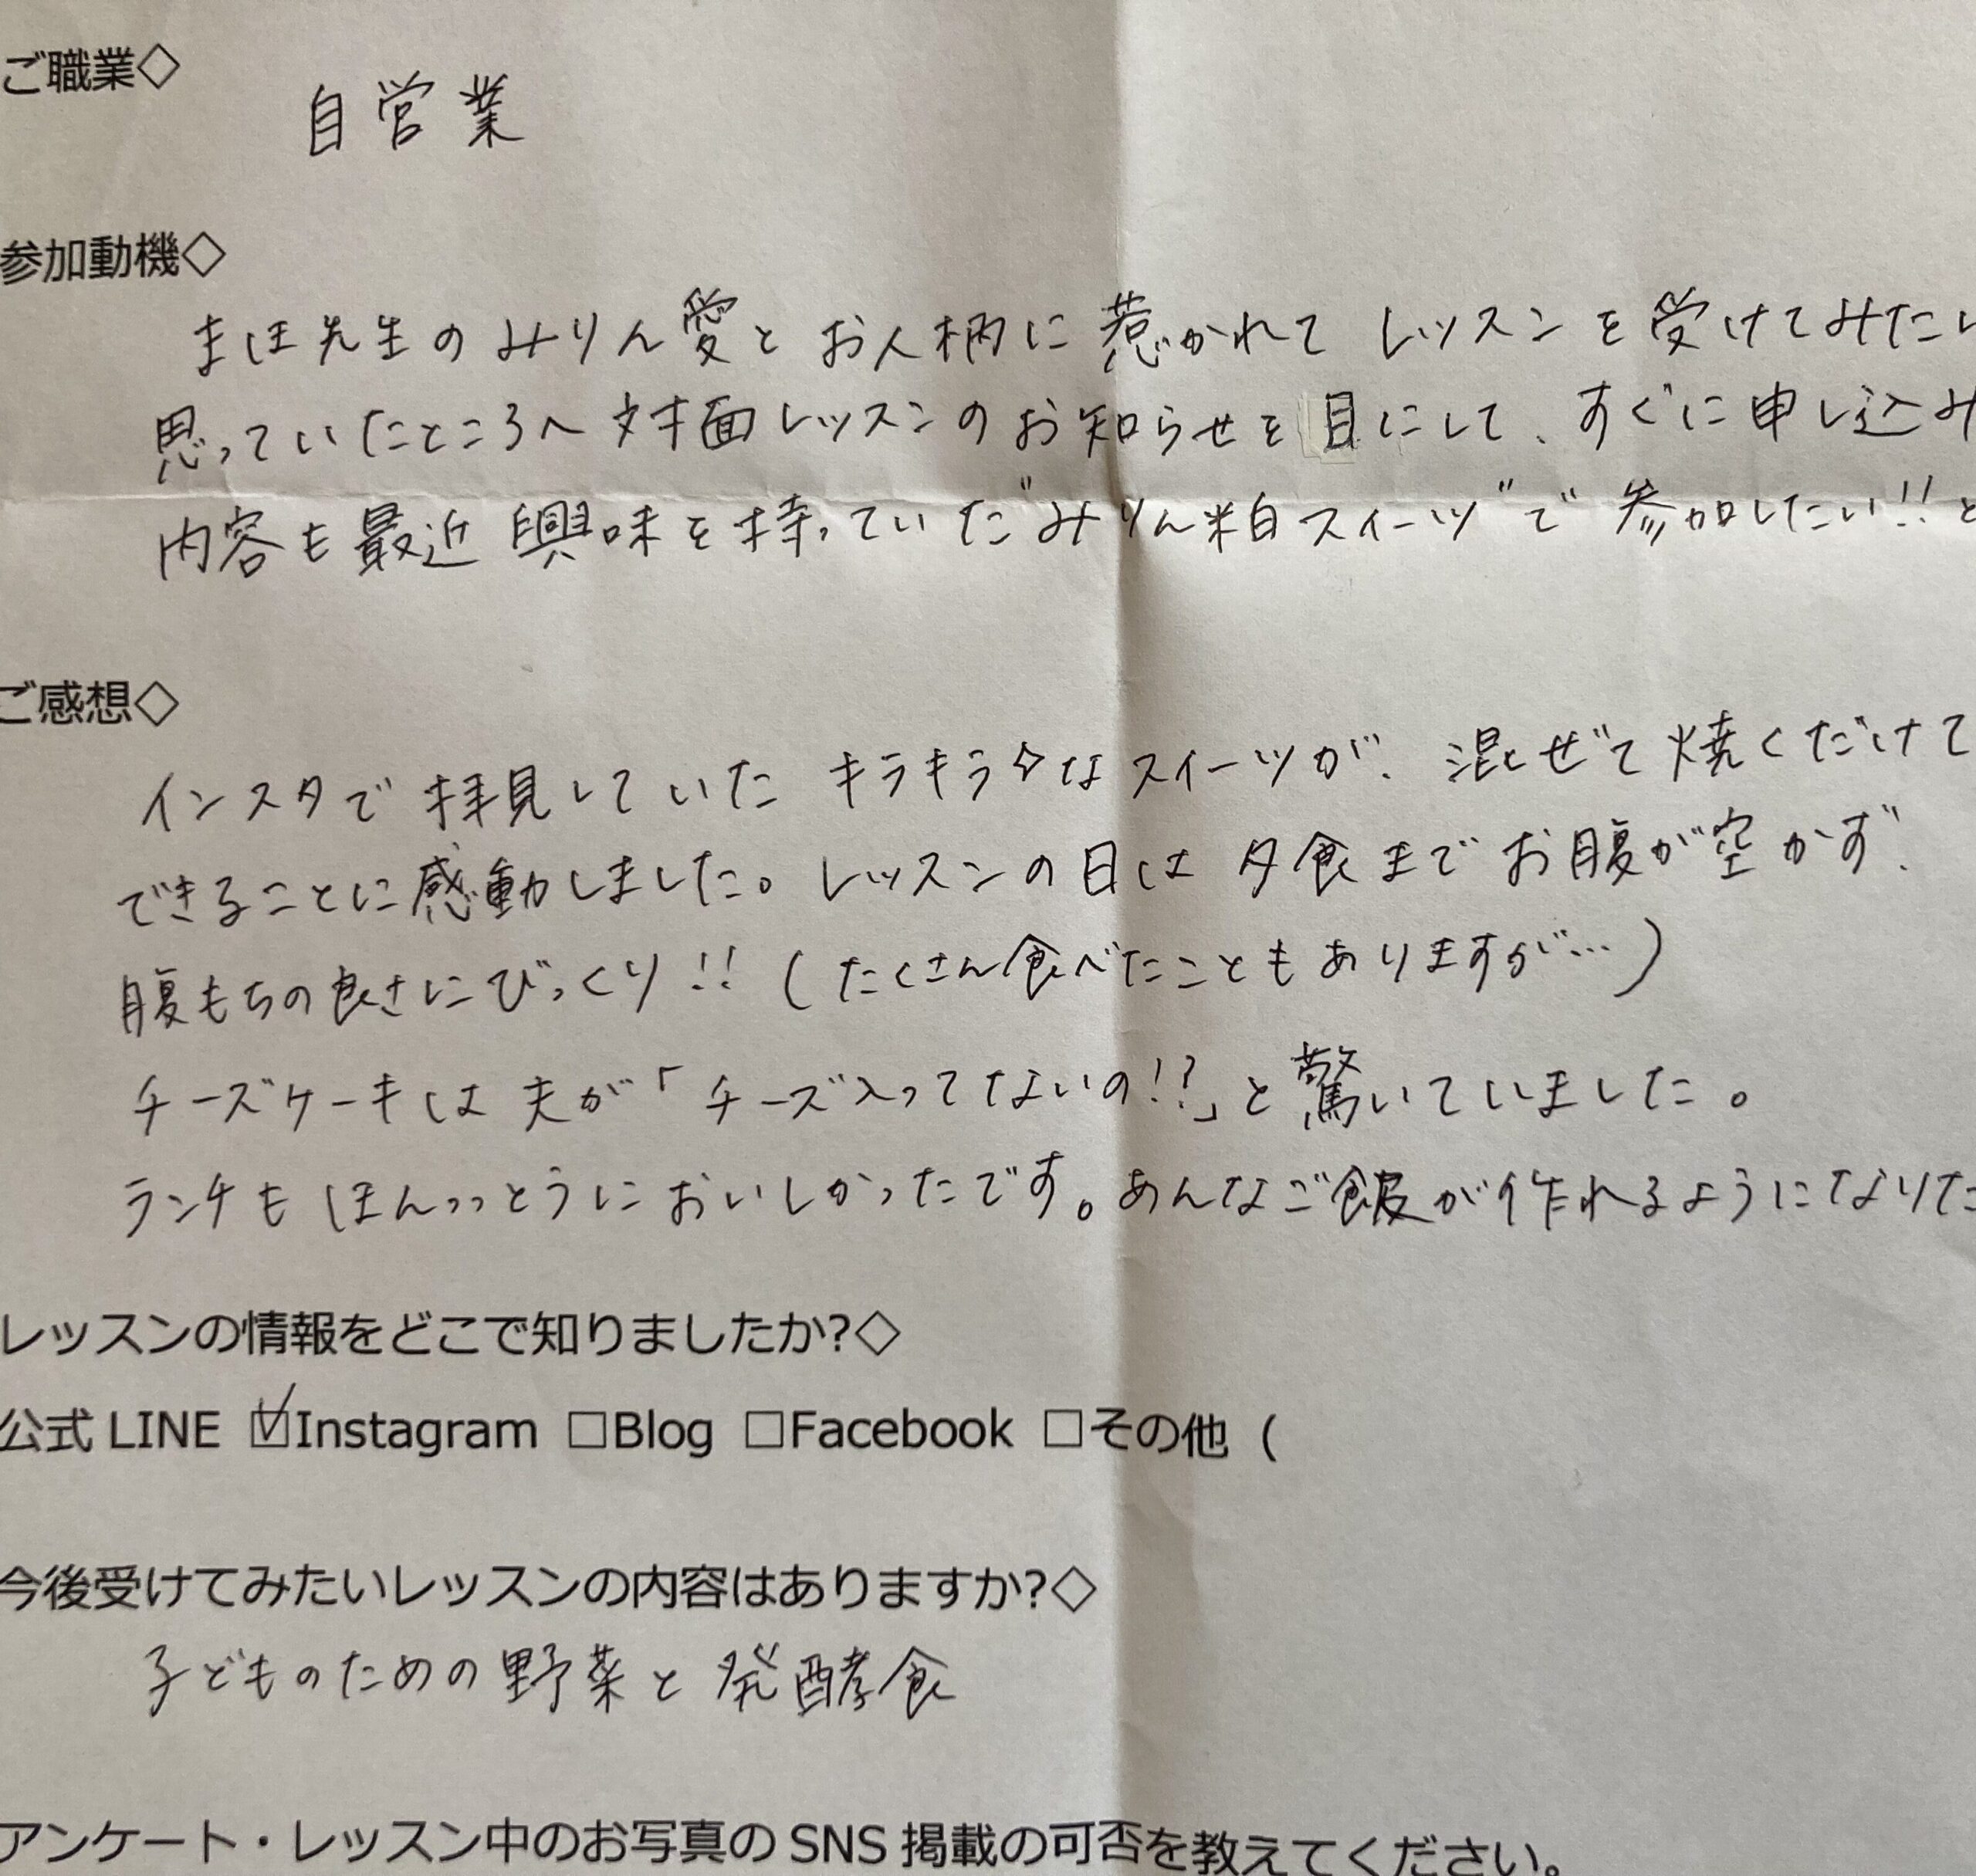 ご職業◇
自営業
参加動機◇
まほ先生のみりん愛とお人柄に惹かれてレッスンを受けてみたい
思っていたところへ対面レッスンのお知らせを目にして、すぐに申し込み
内容も最近興味を持っていた"みりん粕スイーツ"で参加したい!!と
ご感想◇
インスタで拝見していたキラキラ☆なスイーツが、混ぜて焼くだけで
できることに感動しました。レッスンの日は夕食までお腹が空かず、
腹もちの良さにびっくり!!(たくさん食べたこともありますが…)
チーズケーキは夫が「チーズ入ってないの!?」と驚いていました。
ランチもほんっっとうにおいしかったです。あんなご飯が作れるようになりた
レッスンの情報をどこで知りましたか?◇
公式 LINE ☑Instagram □Blog □Facebook □その他 (
今後受けてみたいレッスンの内容はありますか?◇
子どものための野菜と発酵食
アンケート・レッスン中のお写真の SNS 掲載の可否を教えてください。